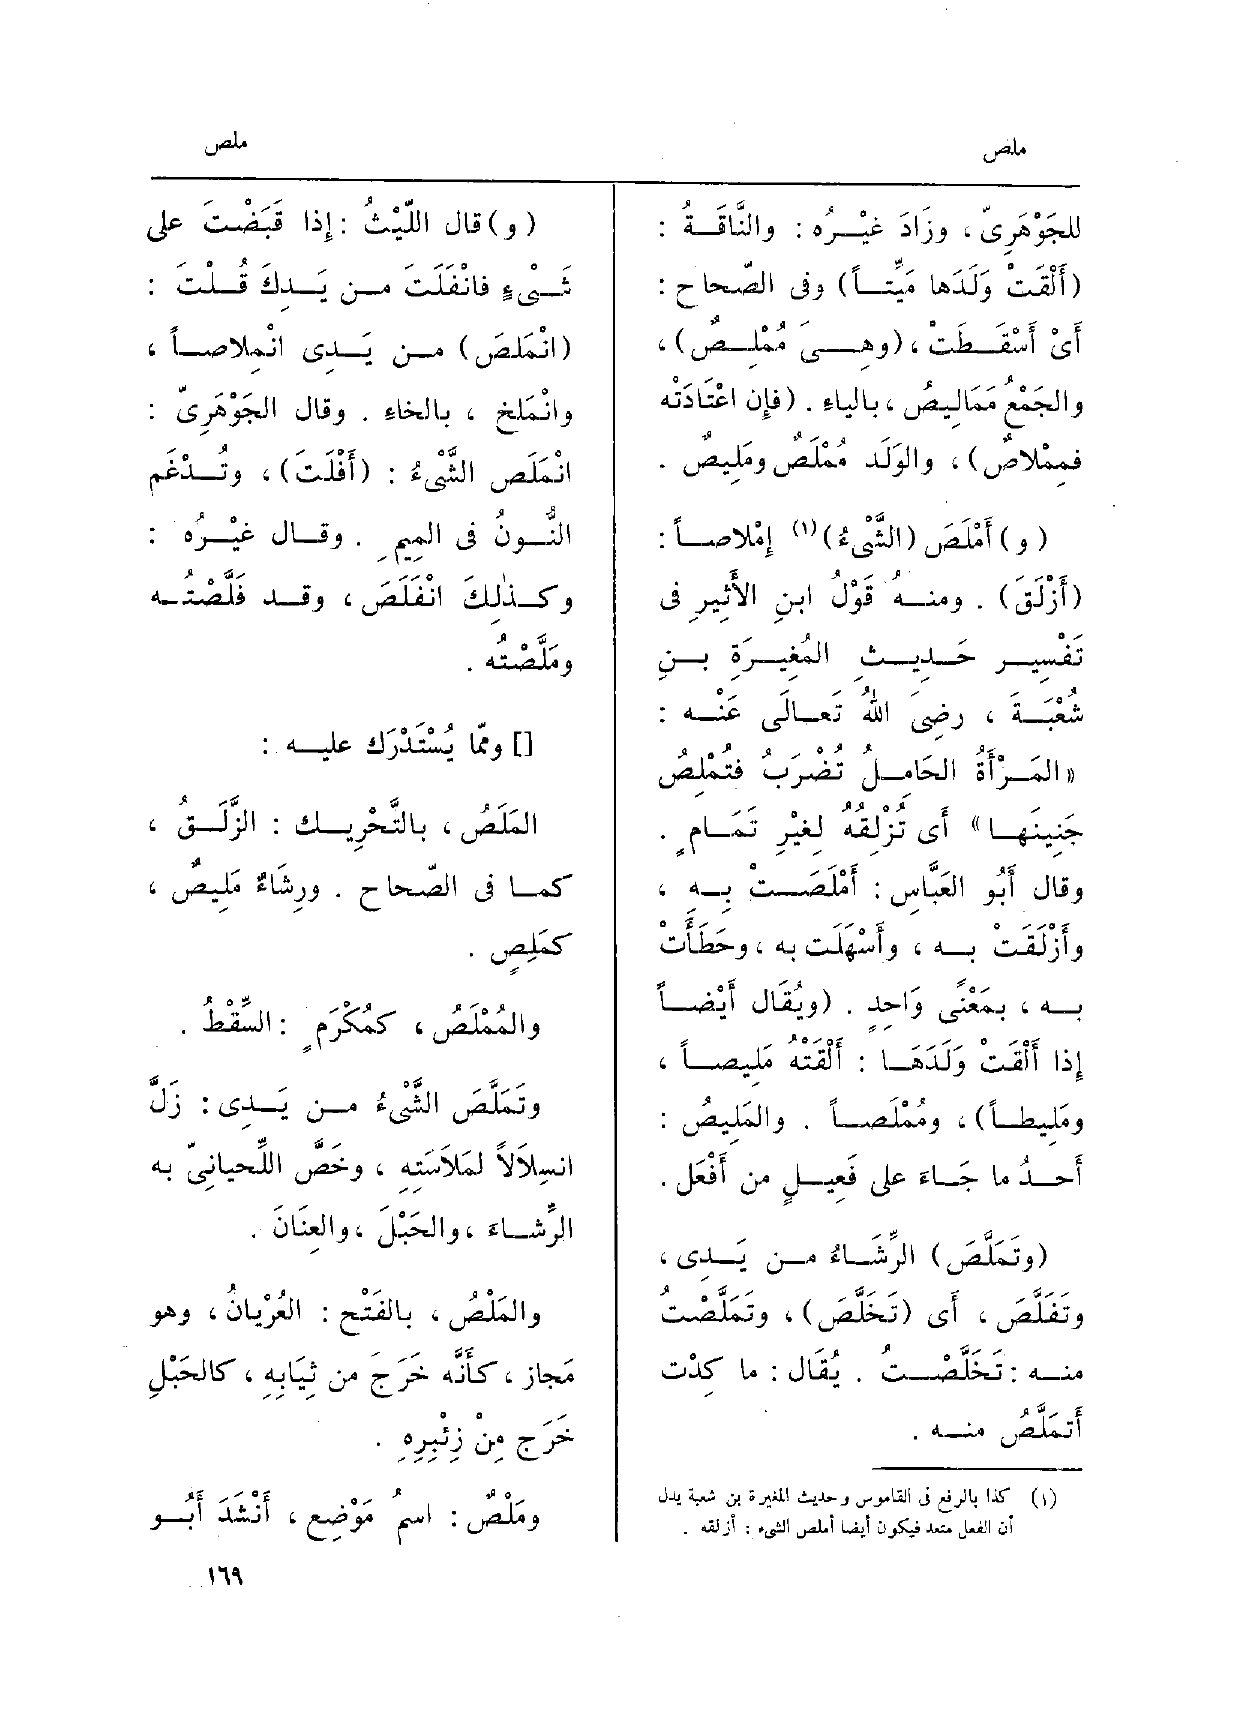 ملص
ملص
للجَوْهَرِىّ، وزَادَ غيْرُه : والنَّاقَةُ :
(أَلْقَتْ وَلَدَها مَيِّتاً) وفى الصّحاح :
أَىْ أَسْقَطَتْ ، (وهِىَ مُمْلِصٌ)،
والجَمْعُ مَمَالِيصُ ، بالياءِ . (فإِن اعْتَادَتْه
فمِمْلاصٌ)، والوَلَد مُمْلَصٌ ومَلِيصٌ .
(و) أَمْلَصَ (الشَّىْءُ) (١) إِمْلاصاً :
(أَزْلَقَ) . ومنه قَوْلُ ابنِ الأَثِيرِ فى
تَفْسِيرِ حَدِيثِ المُغِيرَةِ بنِ
شُعْبَةَ ، رضِىَ اللهُ تَعالَى عَنْه :
«المَرْأَةُ الحَامِلُ تُضْرَبُ فتُمْلِصُ
جَنِينَها» أَى تُزْلِقُهُ لِغَيْرِ تَمَامٍ .
وقال أَبُو العَبَّاسِ : أَمْلَصَتْ بِهِ ،
وأَزْلَقَتْ بِه ، وأَسْهَلَت به ، وحَطَأَتْ
بِه ، بمَعْنًى وَاحِدٍ . (ويُقَال أَيْضاً
إِذا أَلْقَتْ وَلَدَهَا : أَلْقَتْهُ مَلِيصاً ،
ومَلِيطاً)، ومُمْلَصاً . والمَلِيصُ :
أَحدُ ما جَاءَ على فَعِيلٍ من أَفْعَل .
(وتَمَلَّصَ) الرِّشَاءُ مِن يَدِى ،
وتَفَلَّصَ ، أَى (تَخَلَّصَ)، وتَمَلَّصْتُ
منه : تَخَلَّصْتُ . يُقَال : ما كِدْت
أَتَمَلَّصُ منه .
(١) كذا بالرفع فى القاموس وحديث المغيرة بن شعبة يدل
أن الفعل متعد فيكون أيضا أملص الشىء : أزلقه .
(و) قال اللَّيْثُ : إِذا قَبَضْتَ على
شَىْءٍ فانْفَلَتَ مِن يَدِكَ قُلْتَ :
(انْمَلَصَ) مِن يَدِى انْمِلاصاً ،
وانْمَلَخ ، بالخاءِ . وقال الجَوْهَرِىّ :
انْمَلَص الشَّىْءُ : (أَفْلَتَ)، وتُدْغَم
النُّونُ فى المِيمِ . وقال غَيْرُه :
وكَذٰلِكَ انْفَلَصَ ، وقد فَلَّصْتُه
ومَلَّصْتُه .
[] وممّا يُسْتَدْرَك عليه :
المَلَصُ ، بالتَّحْرِيك : الزَّلَقُ ،
كما فى الصّحاح . ورِشَاءٌ مَلِيصٌ ،
كمَلِصٍ .
والمُمْلَصُ ، كمُكْرَمٍ : السِّقْطُ .
وتَمَلَّصَ الشَّىْءُ من يَدِى : زَلَّ
انسِلالاً لمَلاسَتِهِ ، وخَصَّ اللِّحيانىّ به
الرِّشاءَ ، والحَبْلَ ، والعِنَانَ .
والمَلْصُ ، بالفَتْح : العُرْيانُ ، وهو
مَجاز ، كأَنَّه خَرَجَ من ثِيَابِهِ ، كالحَبْلِ
خَرَج مِنْ زِئْبِرِه .
ومَلْصٌ : اسمُ مَوْضِعٍ ، أَنْشَدَ أَبُو
١٦٩